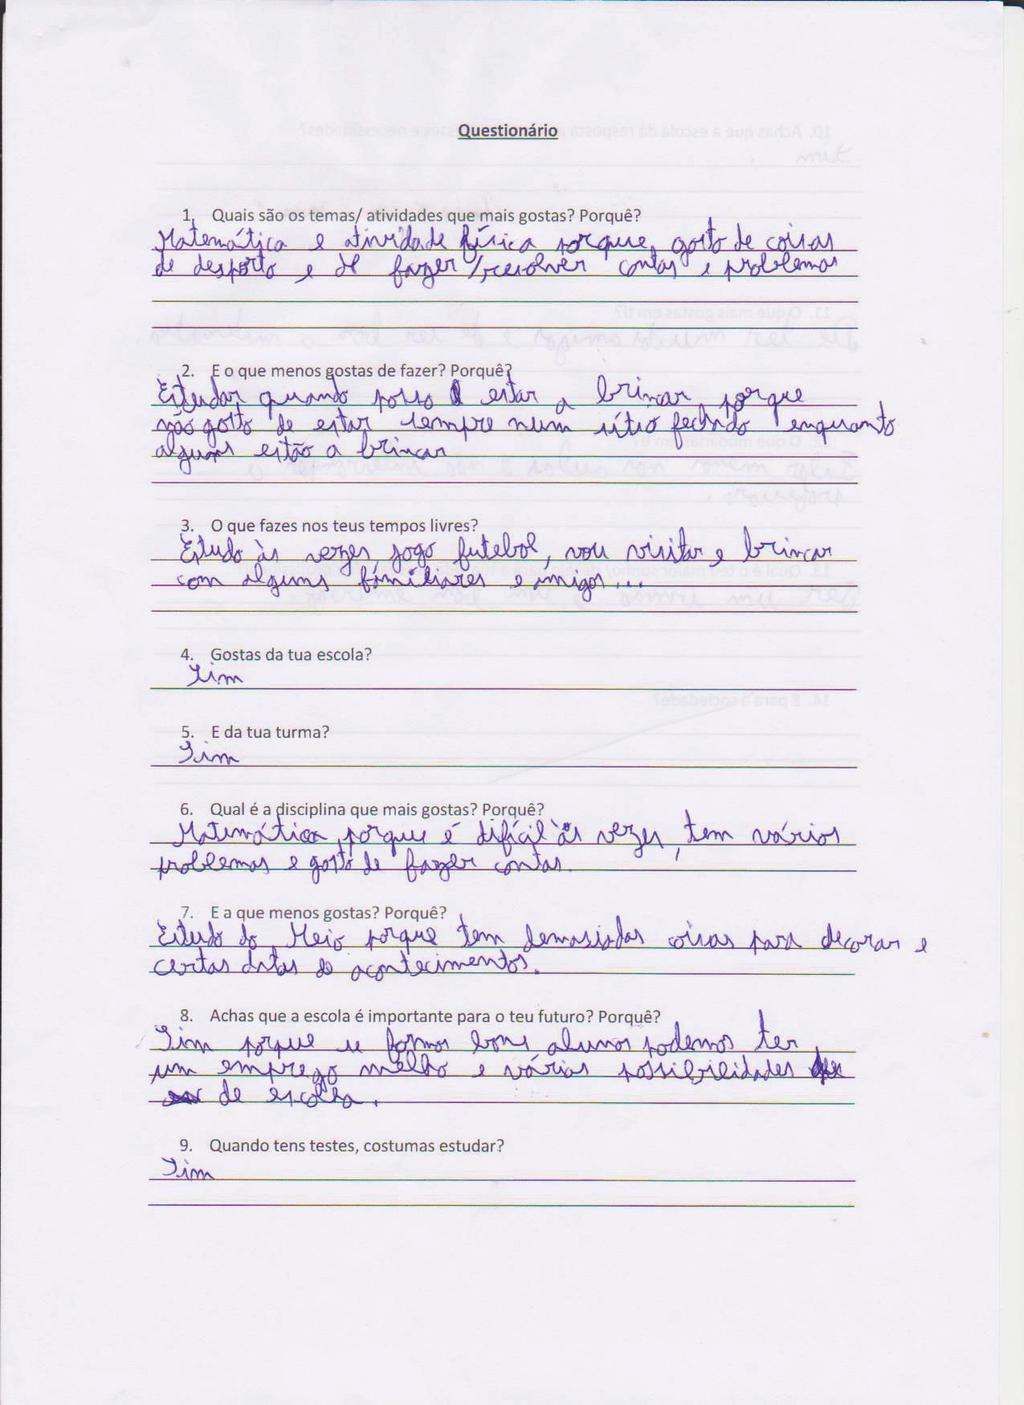 Questionário
1. Quais são os temas/ atividades que mais gostas? Porquê?
Matemática e atividade física porque, gosto de coisas
de desporto e de fazer/resolver contas e problemas
2. E o que menos gostas de fazer? Porquê?
Estudar quando posso estar a brincar, porque
não gosto de estar sempre num sítio fechado enquanto
alguns estão a brincar
3. O que fazes nos teus tempos livres?
Estudo às vezes, jogo futebol, vou visitar e brincar
com alguns familiares e amigos...
4. Gostas da tua escola?
Sim
5. E da tua turma?
Sim
6. Qual é a disciplina que mais gostas? Porquê?
Matemática, porque é difícil às vezes, tem vários
problemas e gosto de fazer contas.
7. E a que menos gostas? Porquê?
Estudo do Meio porque tem demasiadas coisas para decorar e
certas datas de acontecimentos.
8. Achas que a escola é importante para o teu futuro? Porquê?
Sim porque se formos bons alunos podemos ter
um emprego melho e várias possibilidades
de escolha.
9. Quando tens testes, costumas estudar?
Sim